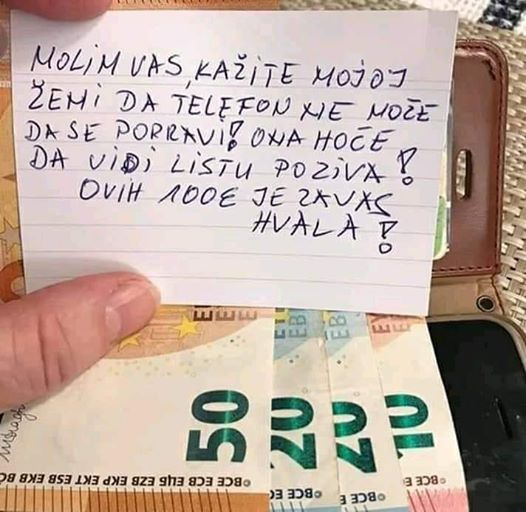 MOLIM VAS, KAŽITE MOJOJ
ŽENI DA TELEFON NE MOŽE
DA SE POPRAVI! ONA HOĆE
DA VIDI LISTU POZIVA!
OVIH 100€ JE ZA VAS
HVALA!
50
20
20
10
©BCE ECB ЕЦБ EZB EKP EKT ESB EKB BC
©BCE E
©BCE E
©BCE E